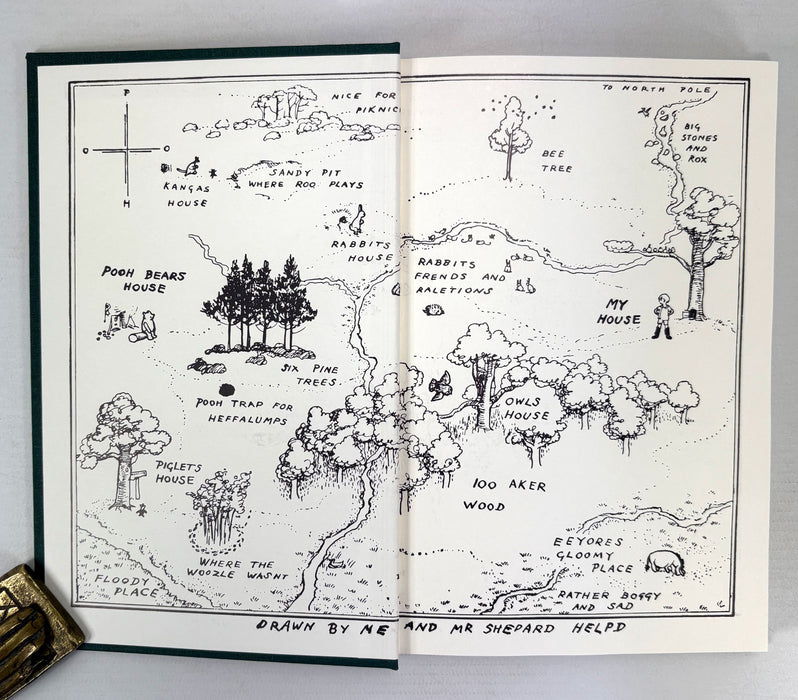 P
O
O
H
NICE FOR
PIKNIC
TO NORTH POLE
BIG
STONES
AND
ROX
BEE
TREE
KANGAS
HOUSE
SANDY PIT
WHERE ROO PLAYS
RABBITS
HOUSE
RABBITS
FRENDS AND
RALETIONS
POOH BEARS
HOUSE
MY
HOUSE
SIX PINE
TREES.
POOH TRAP FOR
HEFFALUMPS
OWLS
HOUSE
PIGLETS
HOUSE
100 AKER
WOOD
WHERE THE
WOOZLE WASNT
FLOODY
PLACE
EEYORES
GLOOMY
PLACE
RATHER BOGGY
AND SAD
DRAWN BY ME AND MR SHEPARD HELPD